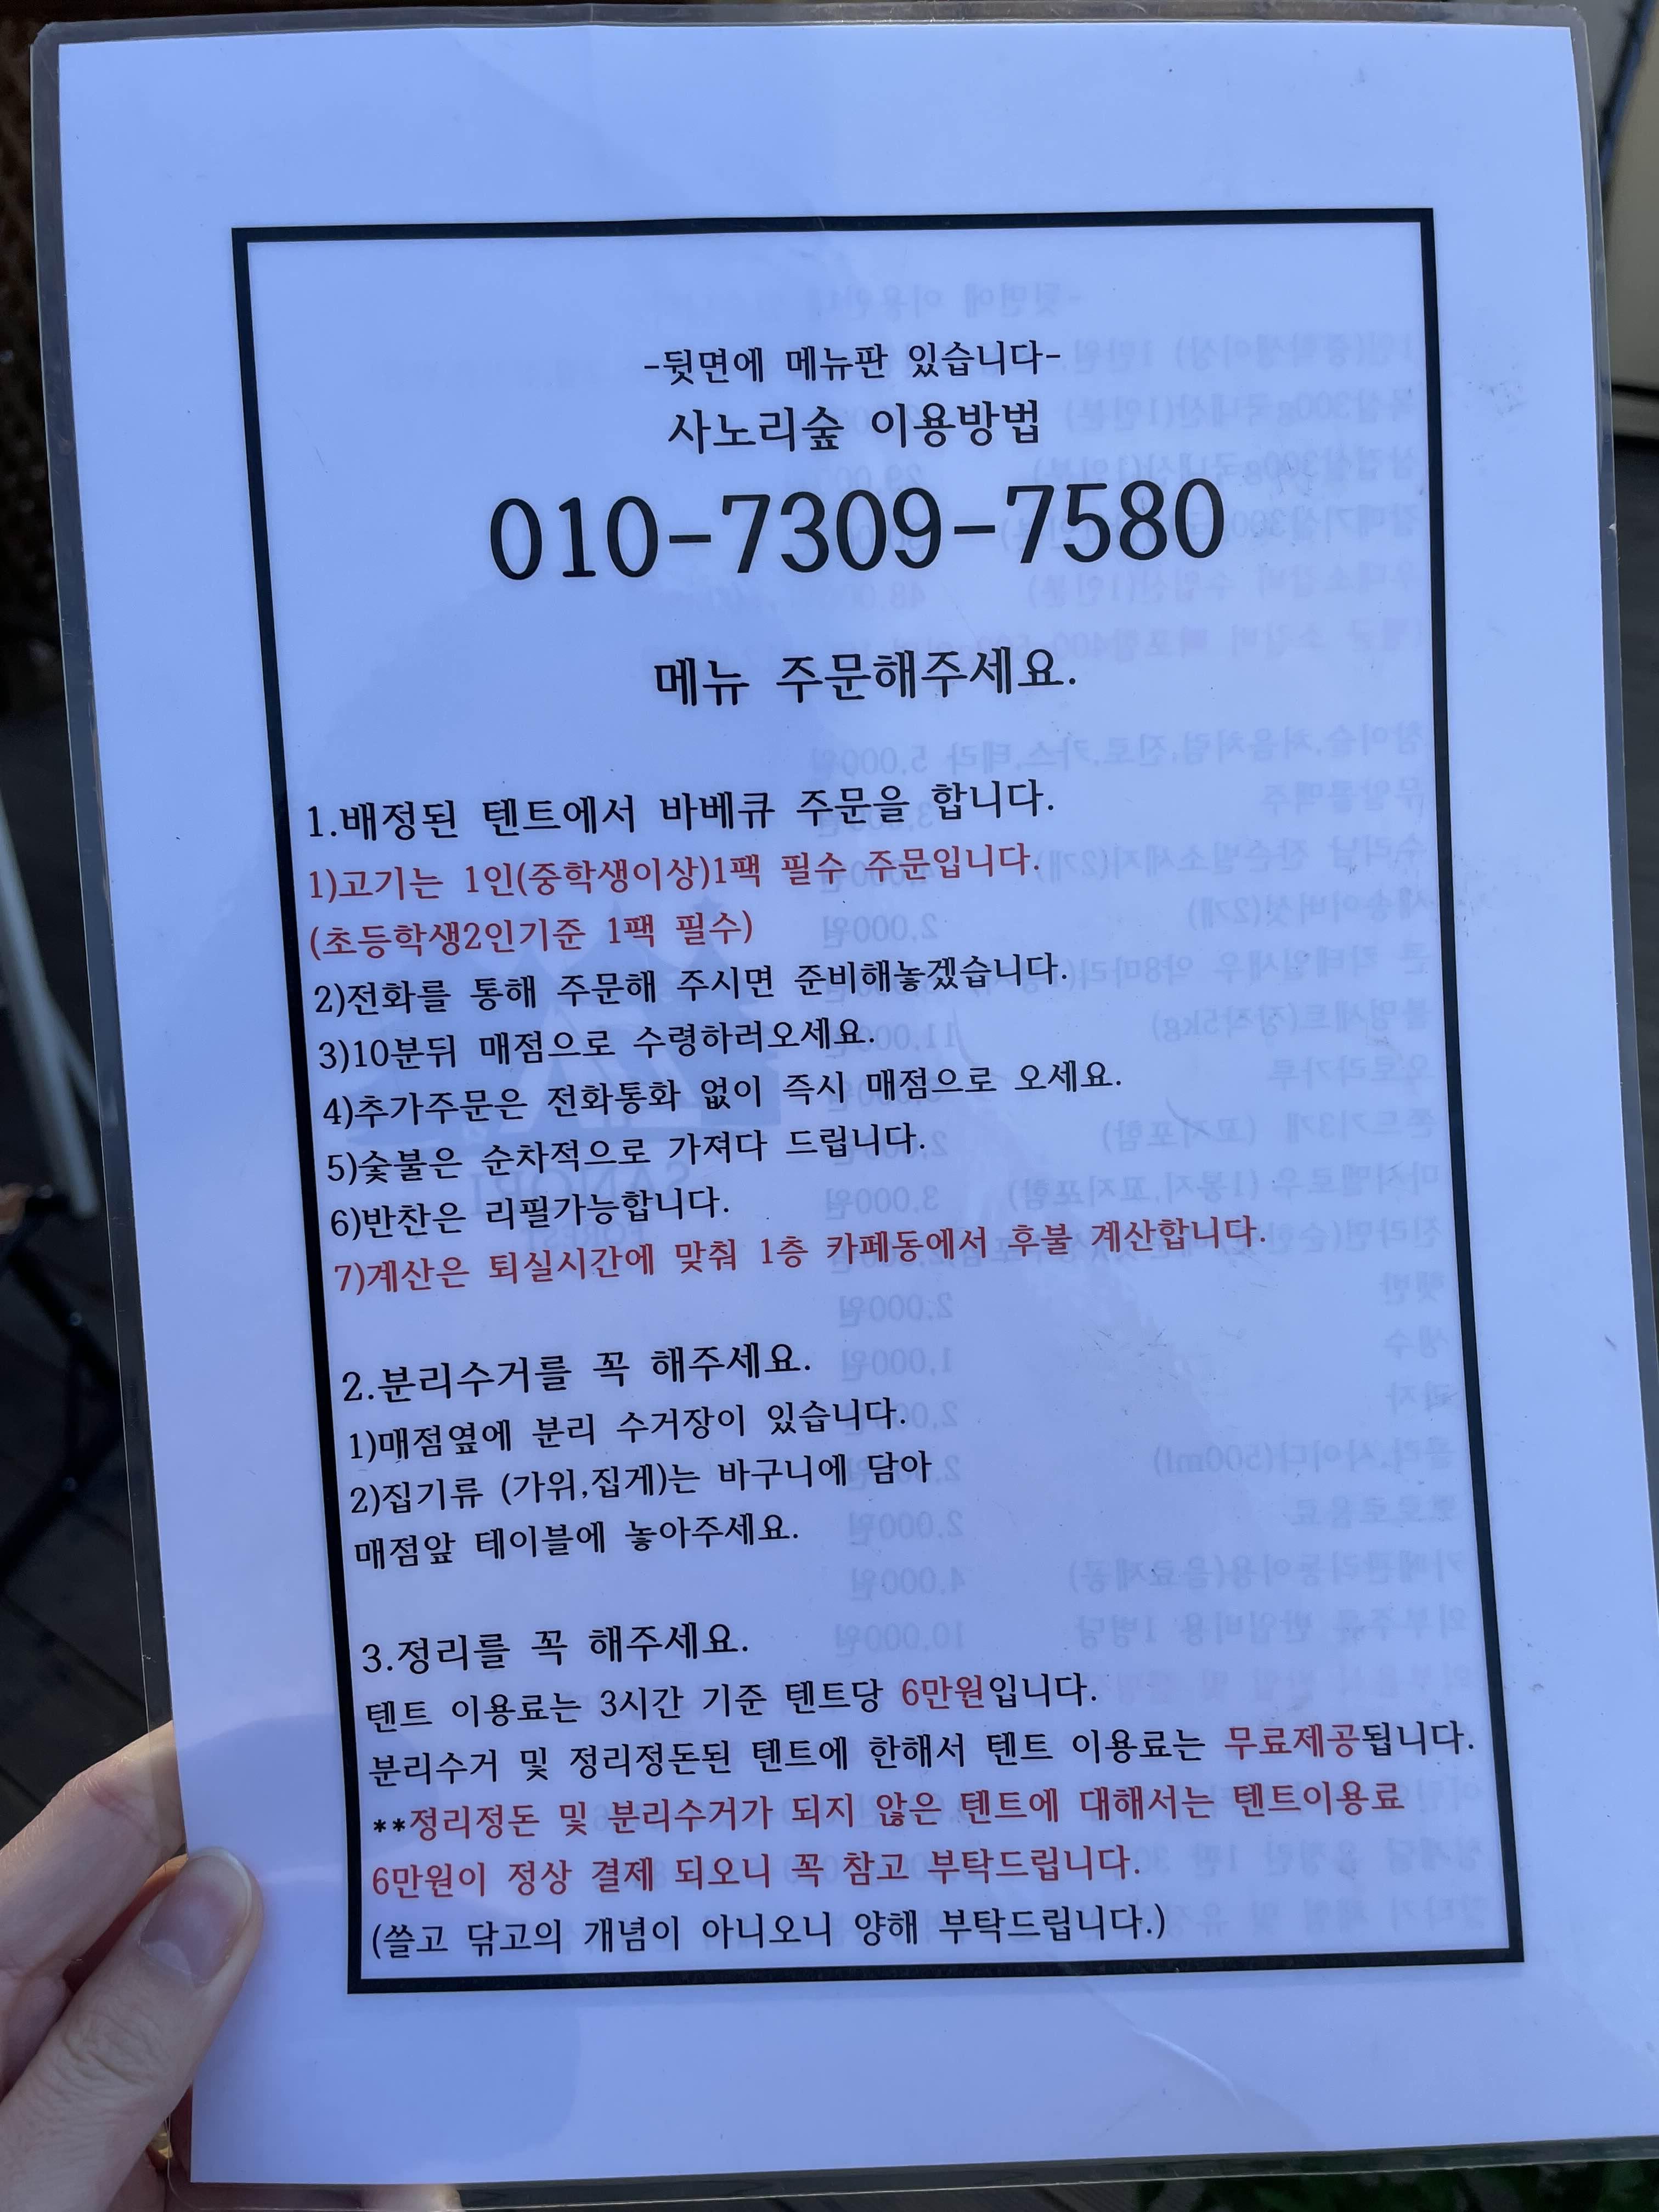 -뒷면에 메뉴판 있습니다-
사노리숲 이용방법
010-7309-7580
메뉴 주문해주세요.
1.배정된 텐트에서 바베큐 주문을 합니다.
1)고기는 1인(중학생이상)1팩 필수 주문입니다.
(초등학생2인기준 1팩 필수)
2)전화를 통해 주문해 주시면 준비해놓겠습니다.
3)10분뒤 매점으로 수령하러오세요.
4)추가주문은 전화통화 없이 즉시 매점으로 오세요.
5)숯불은 순차적으로 가져다 드립니다.
6)반찬은 리필가능합니다.
7)계산은 퇴실시간에 맞춰 1층 카페동에서 후불 계산합니다.
2.분리수거를 꼭 해주세요.
1)매점옆에 분리 수거장이 있습니다.
2)집기류 (가위,집게)는 바구니에 담아
매점앞 테이블에 놓아주세요.
3.정리를 꼭 해주세요.
텐트 이용료는 3시간 기준 텐트당 6만원입니다.
분리수거 및 정리정돈된 텐트에 한해서 텐트 이용료는 무료제공됩니다.
**정리정돈 및 분리수거가 되지 않은 텐트에 대해서는 텐트이용료
6만원이 정상 결제 되오니 꼭 참고 부탁드립니다.
(쓸고 닦고의 개념이 아니오니 양해 부탁드립니다.)